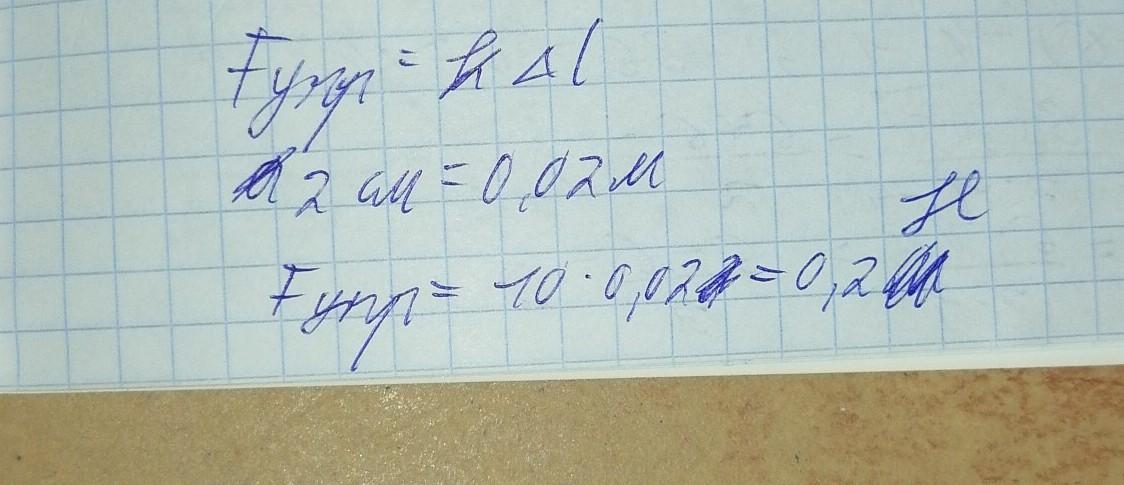 Fупр = k Δl
2 см = 0,02 м
Fупр = 10 · 0,02 = 0,2 Н